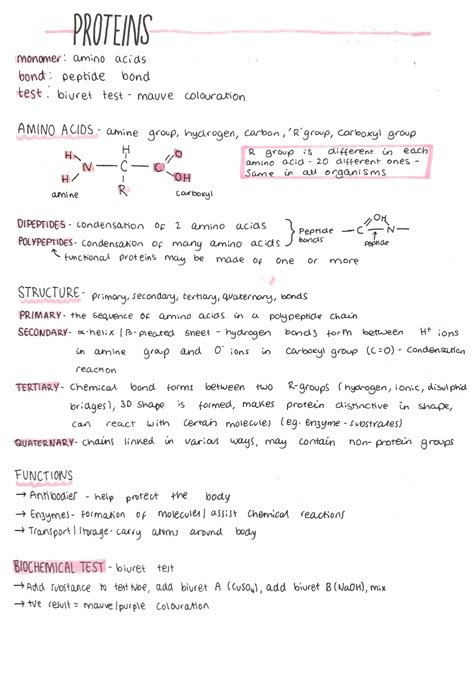 PROTEINS
monomer: amino acids
bond: peptide bond
test: biuret test - mauve colouration
AMINO ACIDS - amine group, hydrogen, carbon, 'R' group, carboxyl group
R group is different in each
amino acid - 20 different ones -
same in all organisms
H H O
N - C - C
H R OH
amine carboxyl
DIPEPTIDES - condensation of 2 amino acids
POLYPEPTIDES - condensation of many amino acids
Peptide bonds
- C - N -
OH
peptide
functional proteins may be made of one or more
STRUCTURE - primary, secondary, tertiary, quaternary, bonds
PRIMARY - the sequence of amino acids in a polypeptide chain
SECONDARY - α-helix / β-pleated sheet - hydrogen bonds form between H⁺ ions
in amine group and O⁻ ions in carboxyl group (C=O) - condensation
reaction
TERTIARY - chemical bond forms between two R-groups (hydrogen, ionic, disulphid
bridges), 3D shape is formed, makes protein distinctive in shape,
can react with certain molecules (eg. enzyme - substrates)
QUATERNARY - chains linked in various ways, may contain non-protein groups
FUNCTIONS
→ Antibodies - help protect the body
→ Enzymes - formation of molecules / assist chemical reactions
→ Transport / storage - carry atoms around body
BIOCHEMICAL TEST - biuret test
→ Add substance to test tube, add biuret A (CuSO₄), add biuret B (NaOH), mix
→ +ve result = mauve/purple colouration